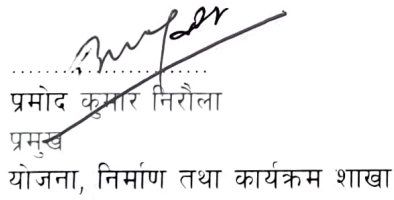 प्रमोद कुमार निरौला
प्रमुख
योजना, निर्माण तथा कार्यक्रम शाखा